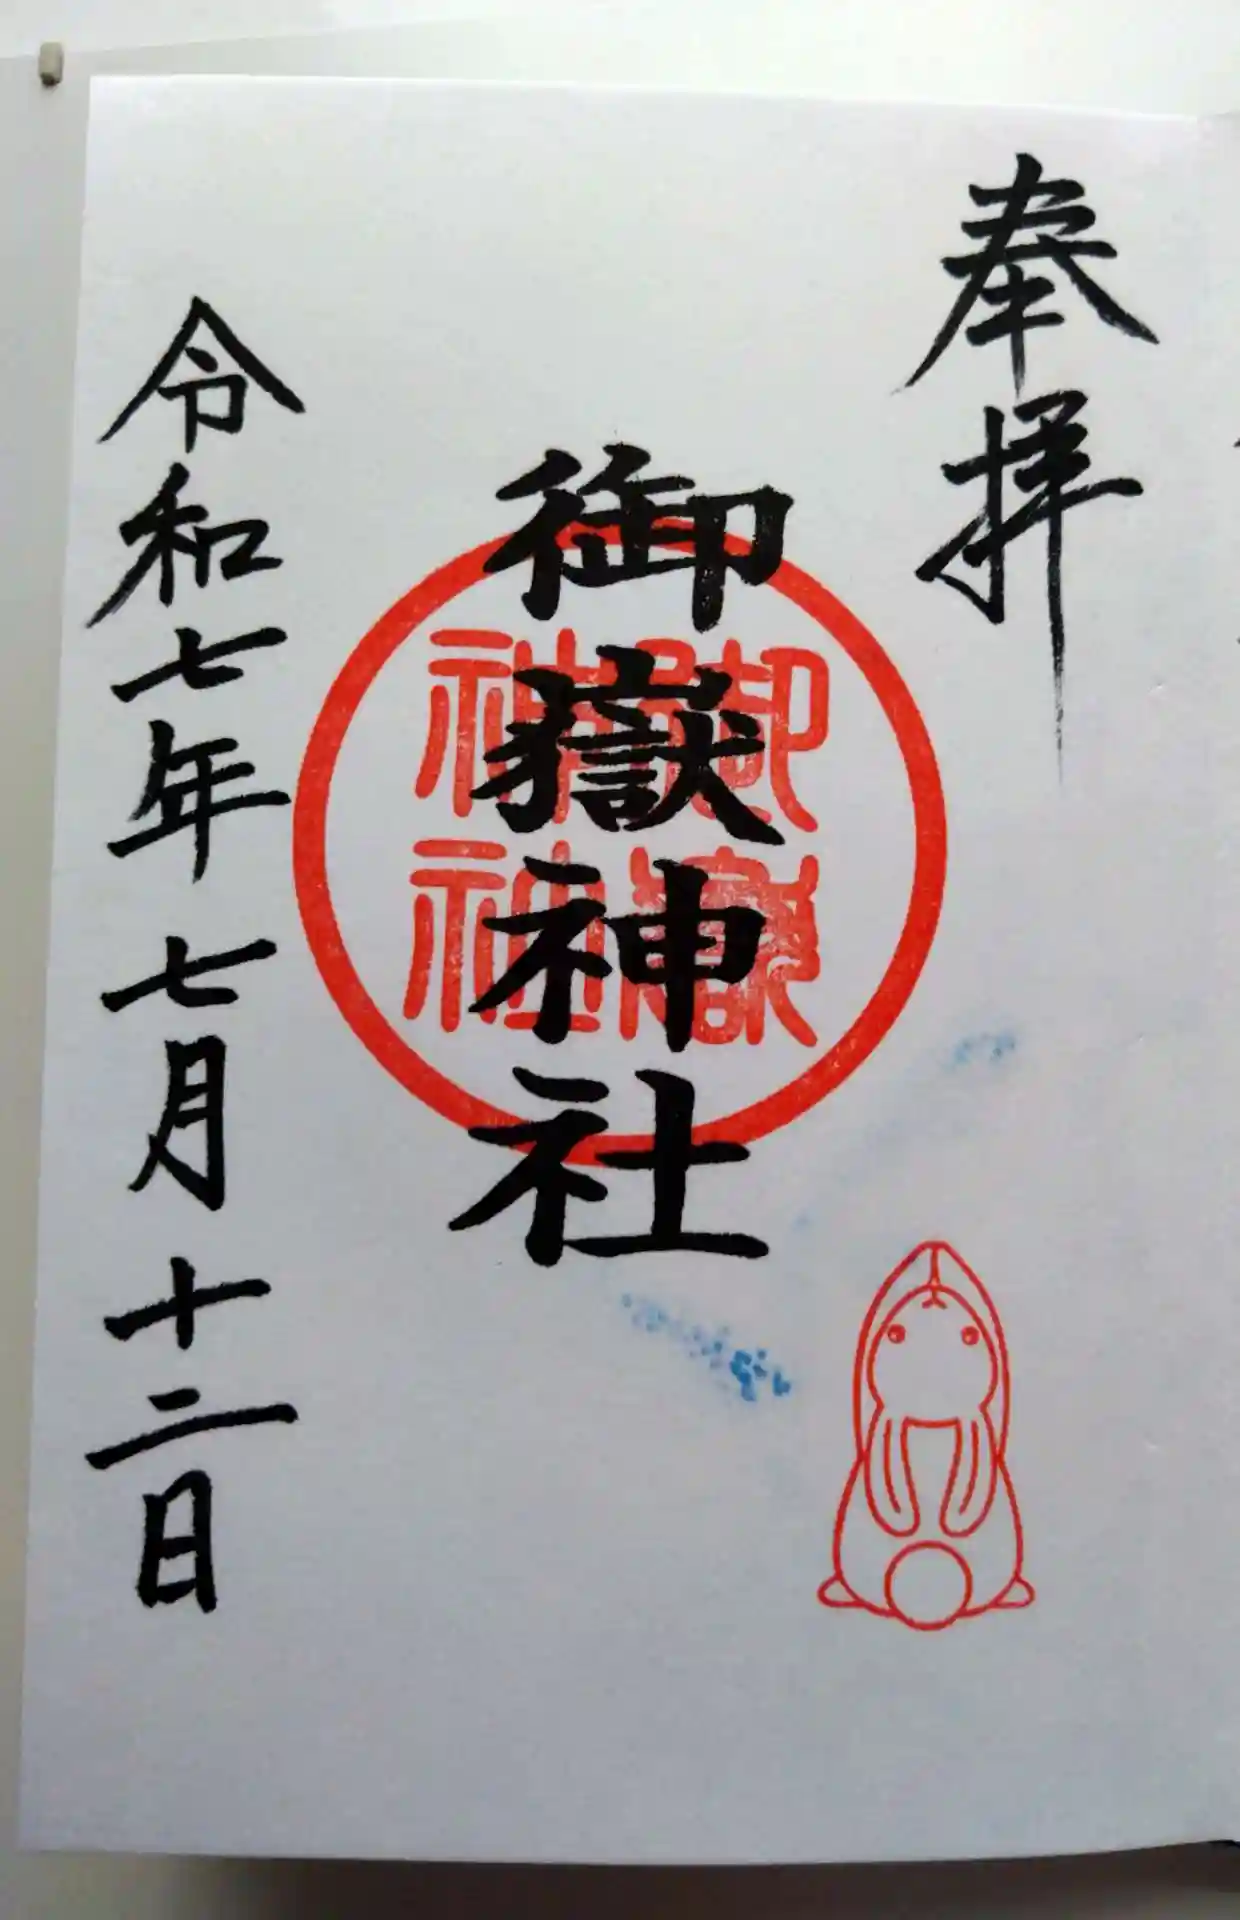 奉拝
御嶽神社
御嶽神社
令和七年七月十二日